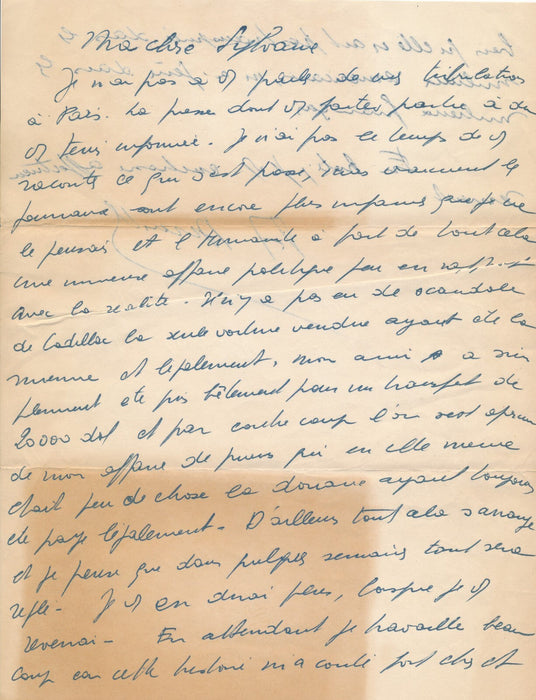 Ma chère Sylvaine
Je n'ai pas à vs parler de mes tribulations
à Paris. La presse dont vs faites partie a du
vs tenir informée. Je n'ai pas le temps de vs
raconter ce qui s'est passé, mais vraiment les
journaux sont encore plus infames que je ne
le pensais et l'Humanité a fait de tout cela
une immense affaire politique peu en rapport
avec la réalité. Il n'y a pas eu de scandale
de Cadillac la seule voiture vendue ayant été la
mienne et légalement, mon ami a sim
plement été pris bêtement pour un transfert de
20000 dol et par contre coup l'on s'est
de mon affaire de qui en elle même
était peu de chose la douane ayant toujours
été payé légalement. D'ailleurs tout cela s'arrange
et je pense que dans quelques semaines tout sera
réglé. Je vs en dirai plus, lorsque je vs
reverrai. En attendant je travaille beau
coup car cette histoire m'a couté fort cher et